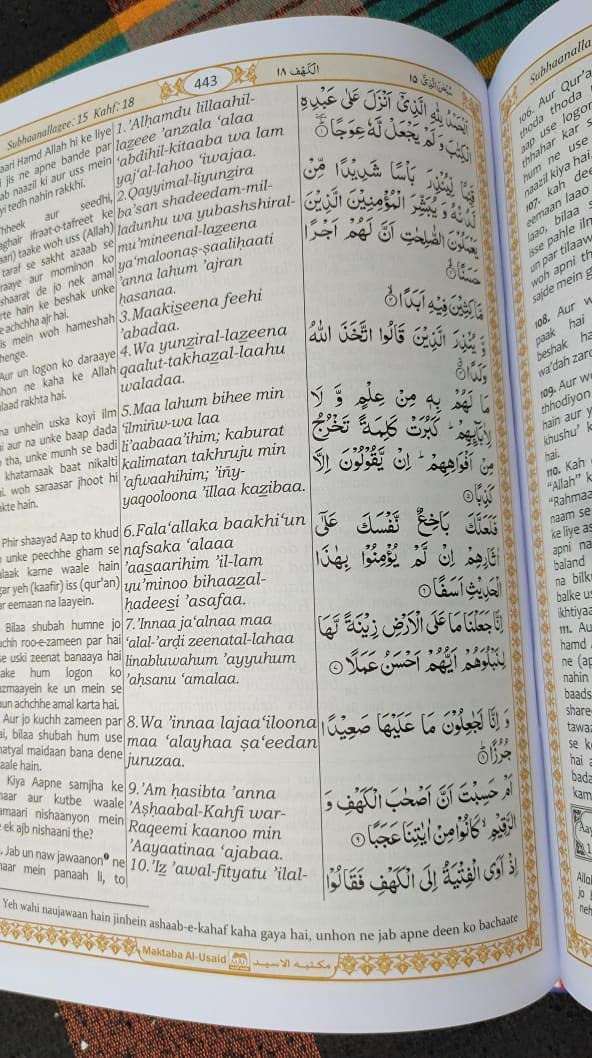 Subhaanallazee: 15 Kahf: 18
443
الكهف ١٨
سبحن الذى ١٥
aari Hamd Allah hi ke liye
i jis ne apne bande par
ab naazil ki aur uss mein
yi tedh nahin rakkhi.
heek aur seedhi,
aghair ifraat-o-tafreet ke
aan) taake woh uss (Allah)
taraf se sakht azaab se
raaye aur mominon ko
shaarat de jo nek amal
rte hain ke beshak unke
e achchha ajr hai.
is mein woh hameshah
henge.
Aur un logon ko daraaye
hon ne kaha ke Allah
laad rakhta hai.
na unhein uska koyi ilm
ai aur na unke baap dada
tha, unke munh se badi
khatarnaak baat nikalti
i. woh saraasar jhoot hi
kte hain.
Phir shaayad Aap to khud
unke peechhe gham se
laak karne waale hain
gar yeh (kaafir) iss (qur'an)
r eemaan na laayein.
Bilaa shubah humne jo
uchh roo-e-zameen par hai
se uski zeenat banaaya hai
ake hum logon ko
azmaayein ke un mein se
aun achchhe amal karta hai.
Aur jo kuchh zameen par
ai, bilaa shubah hum use
hatyal maidaan bana dene
aale hain.
Kiya Aapne samjha ke
haar aur kutbe waale
amaari nishaanyon mein
ek ajb nishaani the?
. Jab un naw jawaanon ne
haar mein panaah li, to
1.'Alhamdu lillaahil-
lazeee 'anzala 'alaa
'abdihil-kitaaba wa lam
yaj'al-lahoo 'iwajaa.
2.Qayyimal-liyunzira
ba'san shadeedam-mil-
ladunhu wa yubashshiral-
mu'mineenal-lazeena
ya'maloonaṣ-ṣaaliḥaati
'anna lahum 'ajran
ḥasanaa.
3.Maakiseena feehi
'abadaa.
4.Wa yunziral-lazeena
qaalut-takhazal-laahu
waladaa.
5.Maa lahum bihee min
'ilmiñw-wa laa
li'aabaaa'ihim; kaburat
kalimatan takhruju min
'afwaahihim; 'iñy-
yaqooloona 'illaa kaziba.
6.Fala'allaka baakhi'un
nafsaka 'alaaa
'aasaarihim 'il-lam
yu'minoo bihaazal-
ḥadeesi 'asafaa.
7.'Innaa ja'alnaa maa
'alal-'arḍi zeenatal-lahaa
linabluwahum 'ayyuhum
'aḥsanu 'amalaa.
8.Wa 'innaa lajaa'iloona
maa 'alayhaa ṣa'eedan
juruzaa.
9.'Am ḥasibta 'anna
'Aṣhaabal-Kahfi war-
Raqeemi kaanoo min
'Aayaatinaa 'ajabaa.
10.'Iz 'awal-fityatu 'ilal-
اَلْحَمْدُ لِلّٰهِ الَّذِىْٓ اَنْزَلَ عَلٰى عَبْدِهِ
الْكِتٰبَ وَلَمْ يَجْعَلْ لَّهٗ عِوَجًا ①
قَيِّمًا لِّيُنْذِرَ بَاْسًا شَدِيْدًا مِّنْ
لَّدُنْهُ وَيُبَشِّرَ الْمُؤْمِنِيْنَ الَّذِيْنَ
يَعْمَلُوْنَ الصّٰلِحٰتِ اَنَّ لَهُمْ اَجْرًا
حَسَنًا ②
مَّاكِثِيْنَ فِيْهِ اَبَدًا ③
وَّ يُنْذِرَ الَّذِيْنَ قَالُوا اتَّخَذَ اللّٰهُ
وَلَدًا ④
مَا لَهُمْ بِهٖ مِنْ عِلْمٍ وَّ لَا
لِاٰبَآئِهِمْ ؕ كَبُرَتْ كَلِمَةً تَخْرُجُ
مِنْ اَفْوَاهِهِمْ ؕ اِنْ يَّقُوْلُوْنَ اِلَّا
كَذِبًا ⑤
فَلَعَلَّكَ بَاخِعٌ نَّفْسَكَ عَلٰٓى
اٰثَارِهِمْ اِنْ لَّمْ يُؤْمِنُوْا بِهٰذَا
الْحَدِيْثِ اَسَفًا ⑥
اِنَّا جَعَلْنَا مَا عَلَى الْاَرْضِ زِيْنَةً لَّهَا
لِنَبْلُوَهُمْ اَيُّهُمْ اَحْسَنُ عَمَلًا ⑦
وَ اِنَّا لَجٰعِلُوْنَ مَا عَلَيْهَا صَعِيْدًا
جُرُزًا ⑧
اَمْ حَسِبْتَ اَنَّ اَصْحٰبَ الْكَهْفِ وَ
الرَّقِيْمِ كَانُوْا مِنْ اٰيٰتِنَا عَجَبًا ⑨
اِذْ اَوَى الْفِتْيَةُ اِلَى الْكَهْفِ فَقَالُوْا
Yeh wahi naujawaan hain jinhein ashaab-e-kahaf kaha gaya hai, unhon ne jab apne deen ko bachaate
Maktaba Al-Usaid
مكتبه الاسيد
Subhaanalla
106. Aur Qur'a
thoda thoda
aap use logo
thhahar kar s
hum ne use
naazil kiya hai
107. kah dee
eemaan laao
laao, bilaa s
isse pahle iln
un par tilaaw
woh apni th
sajde mein g
108. Aur w
paak hai
beshak ha
wa'dah zaro
109. Aur w
thhodiyon
hain aur y
khushu' k
hai.
110. Kah
"Allah" k
"Rahmaa
naam se
ke liye as
apni na
baland
na bilk
balke u
ikhtiyaa
111. Au
hamd
ne (ap
nahin
baads
share
tawaz
se k
hai a
bada
kam
Allal
jo j
neh